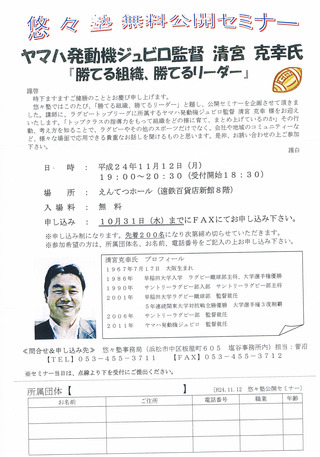 悠々塾 無料公開セミナー
ヤマハ発動機ジュビロ監督 清宮 克幸氏
「勝てる組織、勝てるリーダー」
謹啓
時下ますますご健勝のこととお慶び申し上げます。
悠々塾ではこのたび、「勝てる組織、勝てるリーダー」と題し、公開セミナーを企画させて頂きました。講師に、ラグビートップリーグに所属するヤマハ発動機ジュビロ監督、清宮 克幸 様をお迎えいたします。
謹白
日 時 : 平成24年11月12日(月)
19:00~20:30(受付開始18:30)
場 所 : えんてつホール(遠鉄百貨店新館8階)
入 場 料 : 無 料
申し込み : 10月31日(水)までにFAXにてお申し込み下さい。
※申し込み制になります。先着200名になり次第締め切らせていただきます。
※参加希望の方は、所属団体名、お名前、電話番号をご記入の上お申し込み下さい。
清宮克幸氏 プロフィール
1967年7月17日 大阪生まれ
1986年 早稲田大学入学 ラグビー蹴球部主将、大学選手権優勝
1990年 サントリーラグビー部入部 サントリーラグビー部主将
2001年 早稲田大学ラグビー蹴球部 監督就任
5年連続関東大学対抗戦全勝優勝 大学選手権3度制覇
2006年 サントリーラグビー部 監督就任
2011年 ヤマハ発動機ジュビロ 監督就任
≪問合せ&申し込み先≫ 悠々塾事務局(浜松市中区板屋町605 塩谷事務所内)担当:菅沼
【TEL】053-455-3711 【FAX】053-455-3712
※セミナー当日は、点線より下を受付にご提出ください。
所属団体【 】 [H24.11.12 悠々塾公開セミナー]
お名前 ご住所 電話番号 職業 年齢